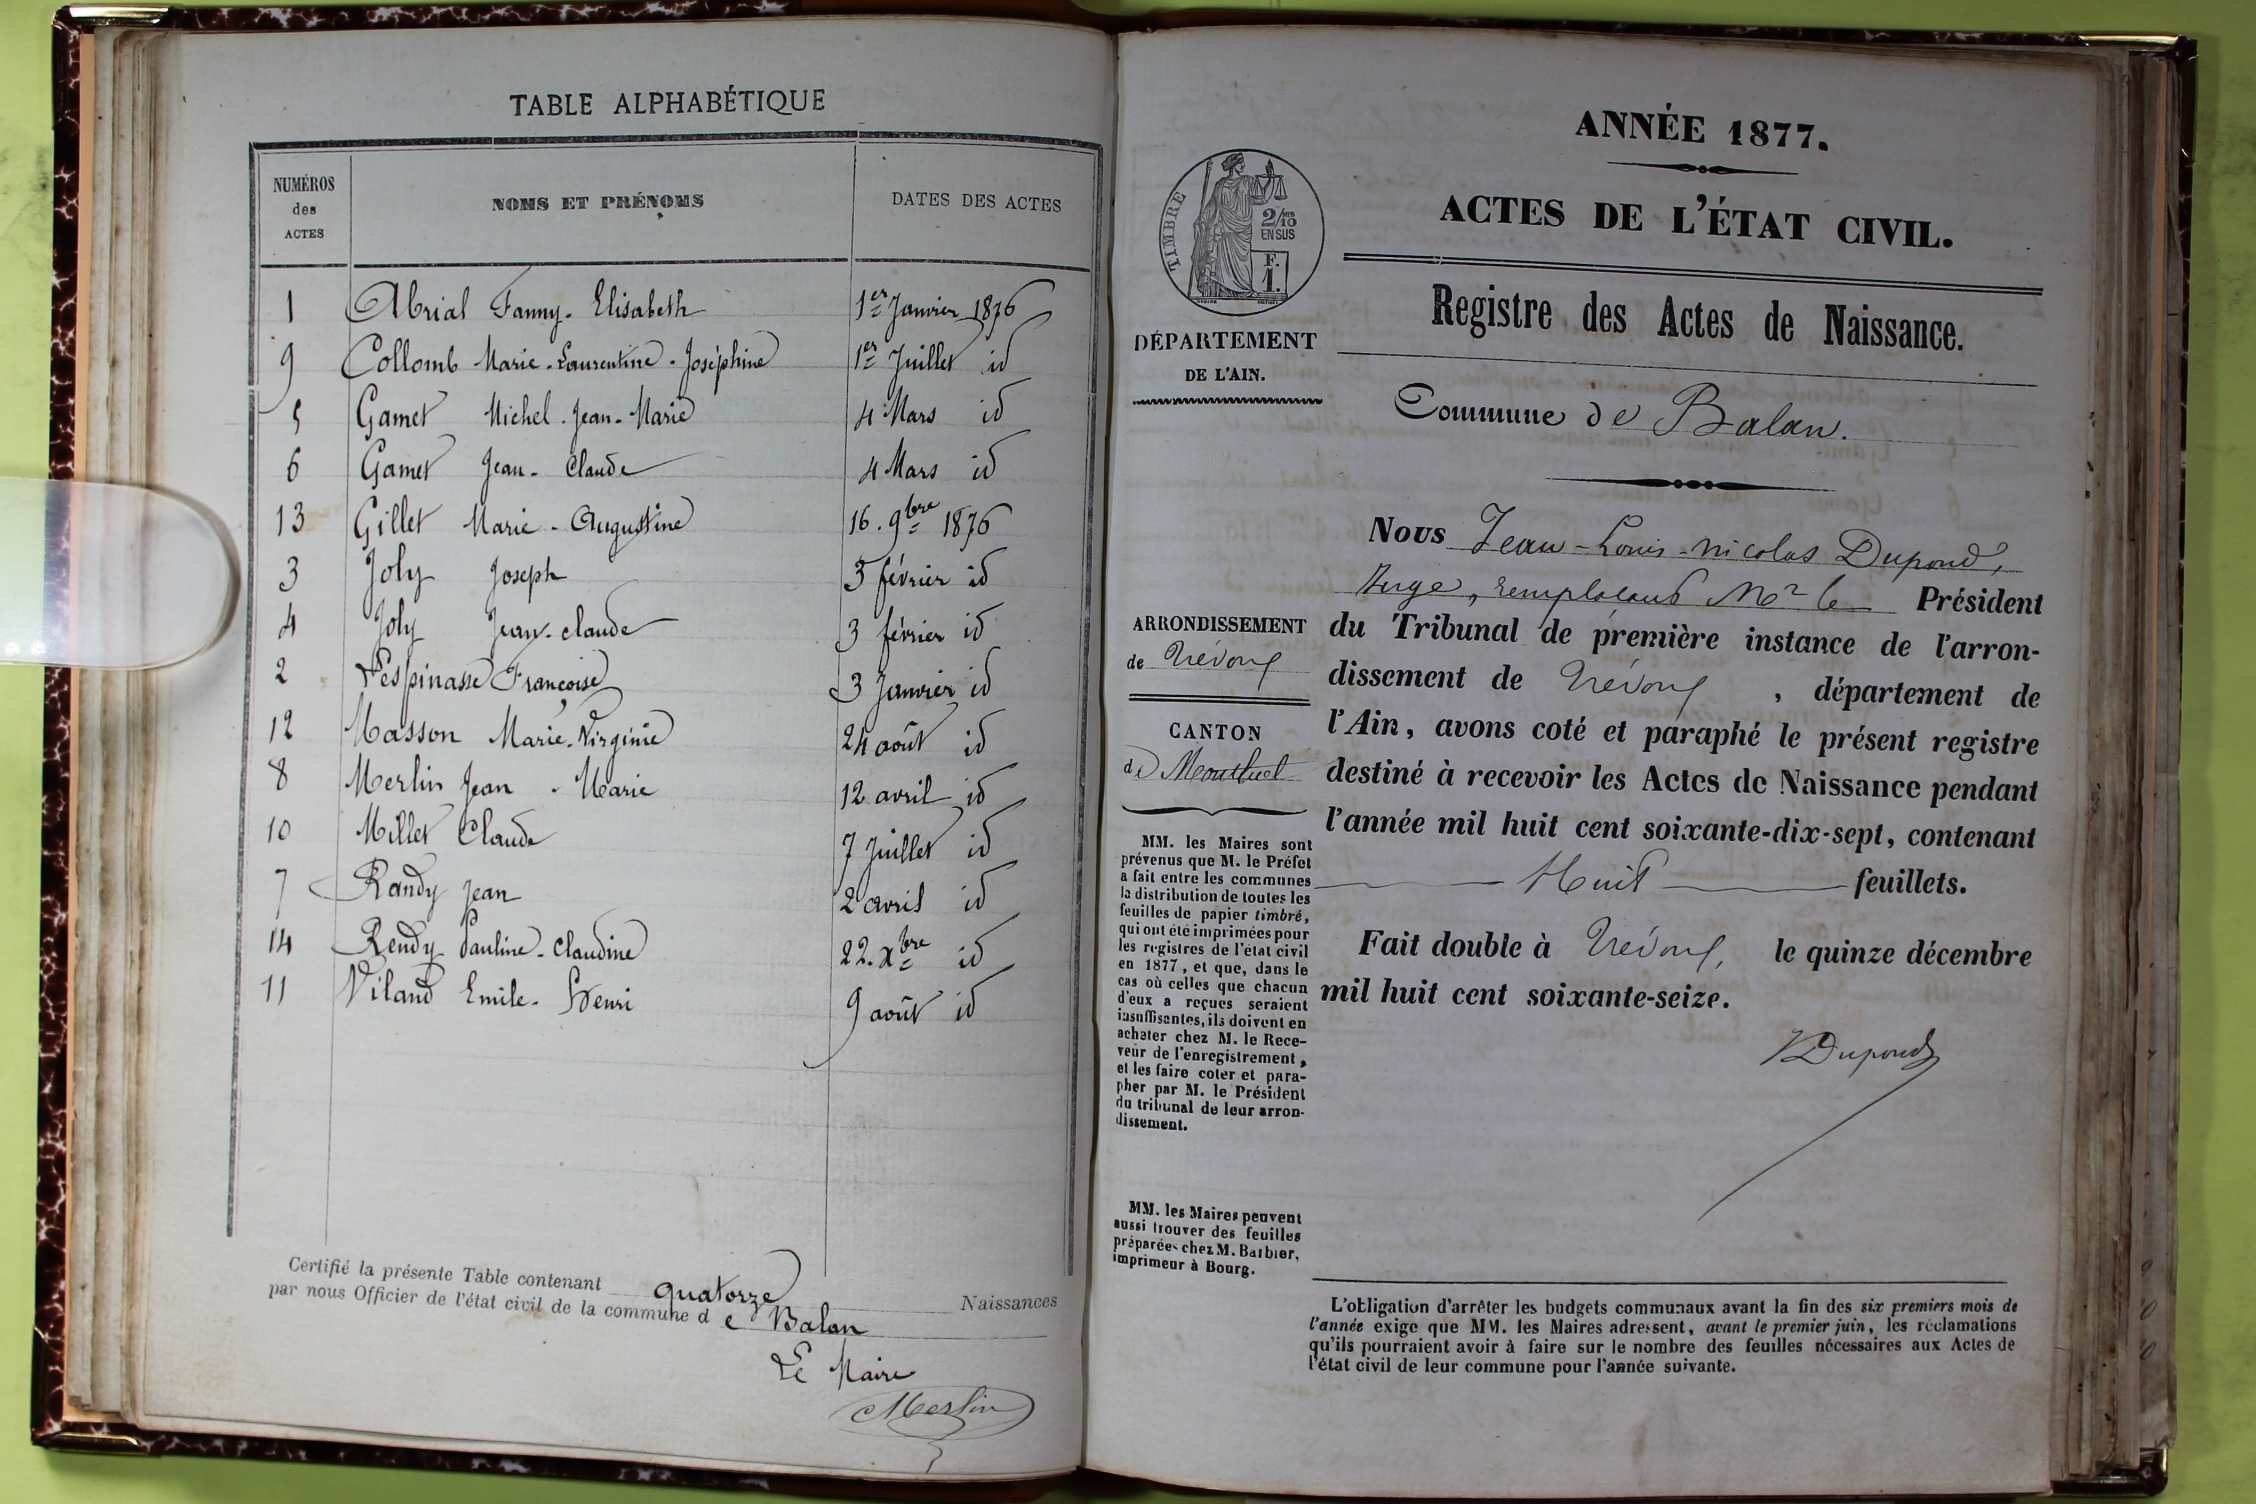 TABLE ALPHABÉTIQUE
NUMÉROS des ACTES NOMS ET PRÉNOMS DATES DES ACTES
1 Abrial Fanny-Elisabeth 1er Janvier 1876
9 Collomb Marie-Laurentine-Joséphine 1er Juillet id
5 Gamet Michel-Jean-Marie 4 Mars id
6 Gamet Jean-Claude 4 Mars id
13 Gillet Marie-Augustine 16. 9bre 1876
3 Joly Joseph 3 février id
4 Joly Jean-claude 3 février id
2 Lespinasse Françoise 3 Janvier id
12 Masson Marie-Virginie 24 août id
8 Merlin Jean-Marie 12 avril id
10 Millet Claude 7 Juillet id
7 Randy Jean 2 avril id
14 Rendy Pauline-Claudine 22. xbre id
11 Viland Emile-Henri 9 août id
Certifié la présente Table contenant quatorze Naissances
par nous Officier de l'état civil de la commune de Balan
Le Maire
Merlin
ANNÉE 1877.
ACTES DE L'ÉTAT CIVIL.
TIMBRE
2/10 EN SUS
F. 1.
Registre des Actes de Naissance.
DÉPARTEMENT
DE L'AIN.
Commune de Balan.
Nous Jean-Louis-Nicolas Dupond,
Juge, remplaçant Mr le Président
du Tribunal de première instance de l'arron-
dissement de Trévoux, département de
l'Ain, avons coté et paraphé le présent registre
destiné à recevoir les Actes de Naissance pendant
l'année mil huit cent soixante-dix-sept, contenant
Huit feuillets.
Fait double à Trévoux, le quinze décembre
mil huit cent soixante-seize.
Dupond
ARRONDISSEMENT
de Trévoux
CANTON
de Montluel
MM. les Maires sont
prévenus que M. le Préfet
a fait entre les communes
la distribution de toutes les
feuilles de papier timbré,
qui ont été imprimées pour
les registres de l'état civil
en 1877, et que, dans le
cas où celles que chacun
d'eux a reçues seraient
insuffisantes, ils doivent en
acheter chez M. le Rece-
veur de l'enregistrement,
et les faire coter et para-
pher par M. le Président
du tribunal de leur arron-
dissement.
MM. les Maires peuvent
aussi trouver des feuilles
préparées chez M. Barbier,
imprimeur à Bourg.
L'obligation d'arrêter les budgets communaux avant la fin des six premiers mois de
l'année exige que MM. les Maires adressent, avant le premier juin, les réclamations
qu'ils pourraient avoir à faire sur le nombre des feuilles nécessaires aux Actes de
l'état civil de leur commune pour l'année suivante.